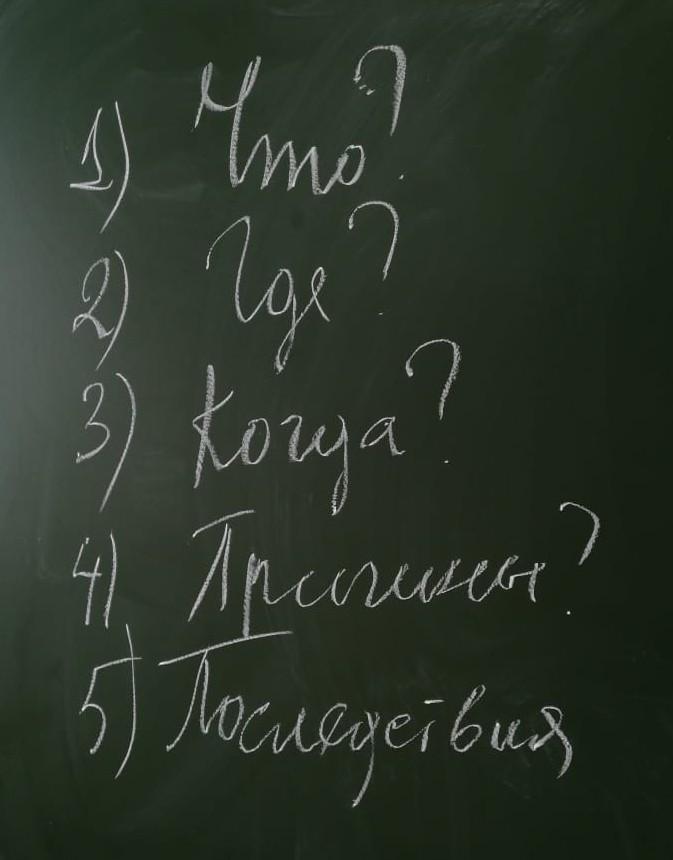 1) Что?
2) Где?
3) Когда?
4) Причины?
5) Последствия